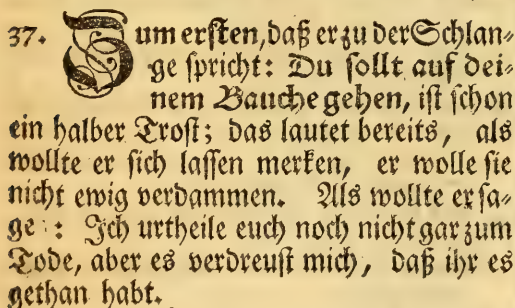 37. Zum ersten, daß er zu der Schlan-
ge spricht: Du sollt auf dei-
nem Bauche gehen, ist schon
ein halber Trost; das lautet bereits, als
wollte er sich lassen merken, er wolle sie
nicht ewig verdammen. Als wollte er sa-
ge : Ich urtheile euch noch nicht gar zum
Tode, aber es verdreust mich, daß ihr es
gethan habt.